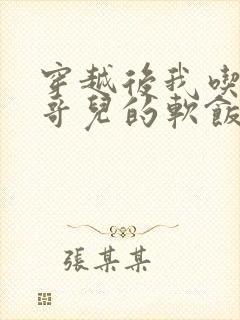 穿越後我喫
哥兒的軟飯
張某某